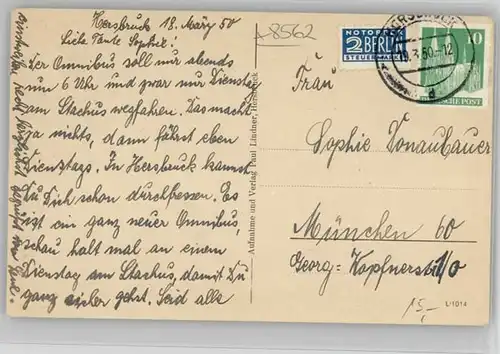 Hersbruck 18. März 50
Liebe Tante Sophie!
Der Omnibus soll mir abends
um 6 Uhr und zwar nur Dienstag
am Stachus wegfahren. Das macht
ja nichts, dann fährst eben
Dienstags. In Hersbruck kannst
Du Dich schon durchfressen. Es
ist ein ganz neuer Omnibus,
schau halt mal an einem
Dienstag am Stachus, damit Du
ganz sicher gehst. Seid alle
recht
Aufnahme und Verlag Paul Lindner, Hersbruck
A8562
NOTOPFER
2 BERLIN
STEUERMARKE
HERSBRUCK
.3.50.-12
10
DEUTSCHE POST
Frau
Sophie Donaubauer
München 60
Georg-Kopfnerst. 1/0
15,-
L 1014